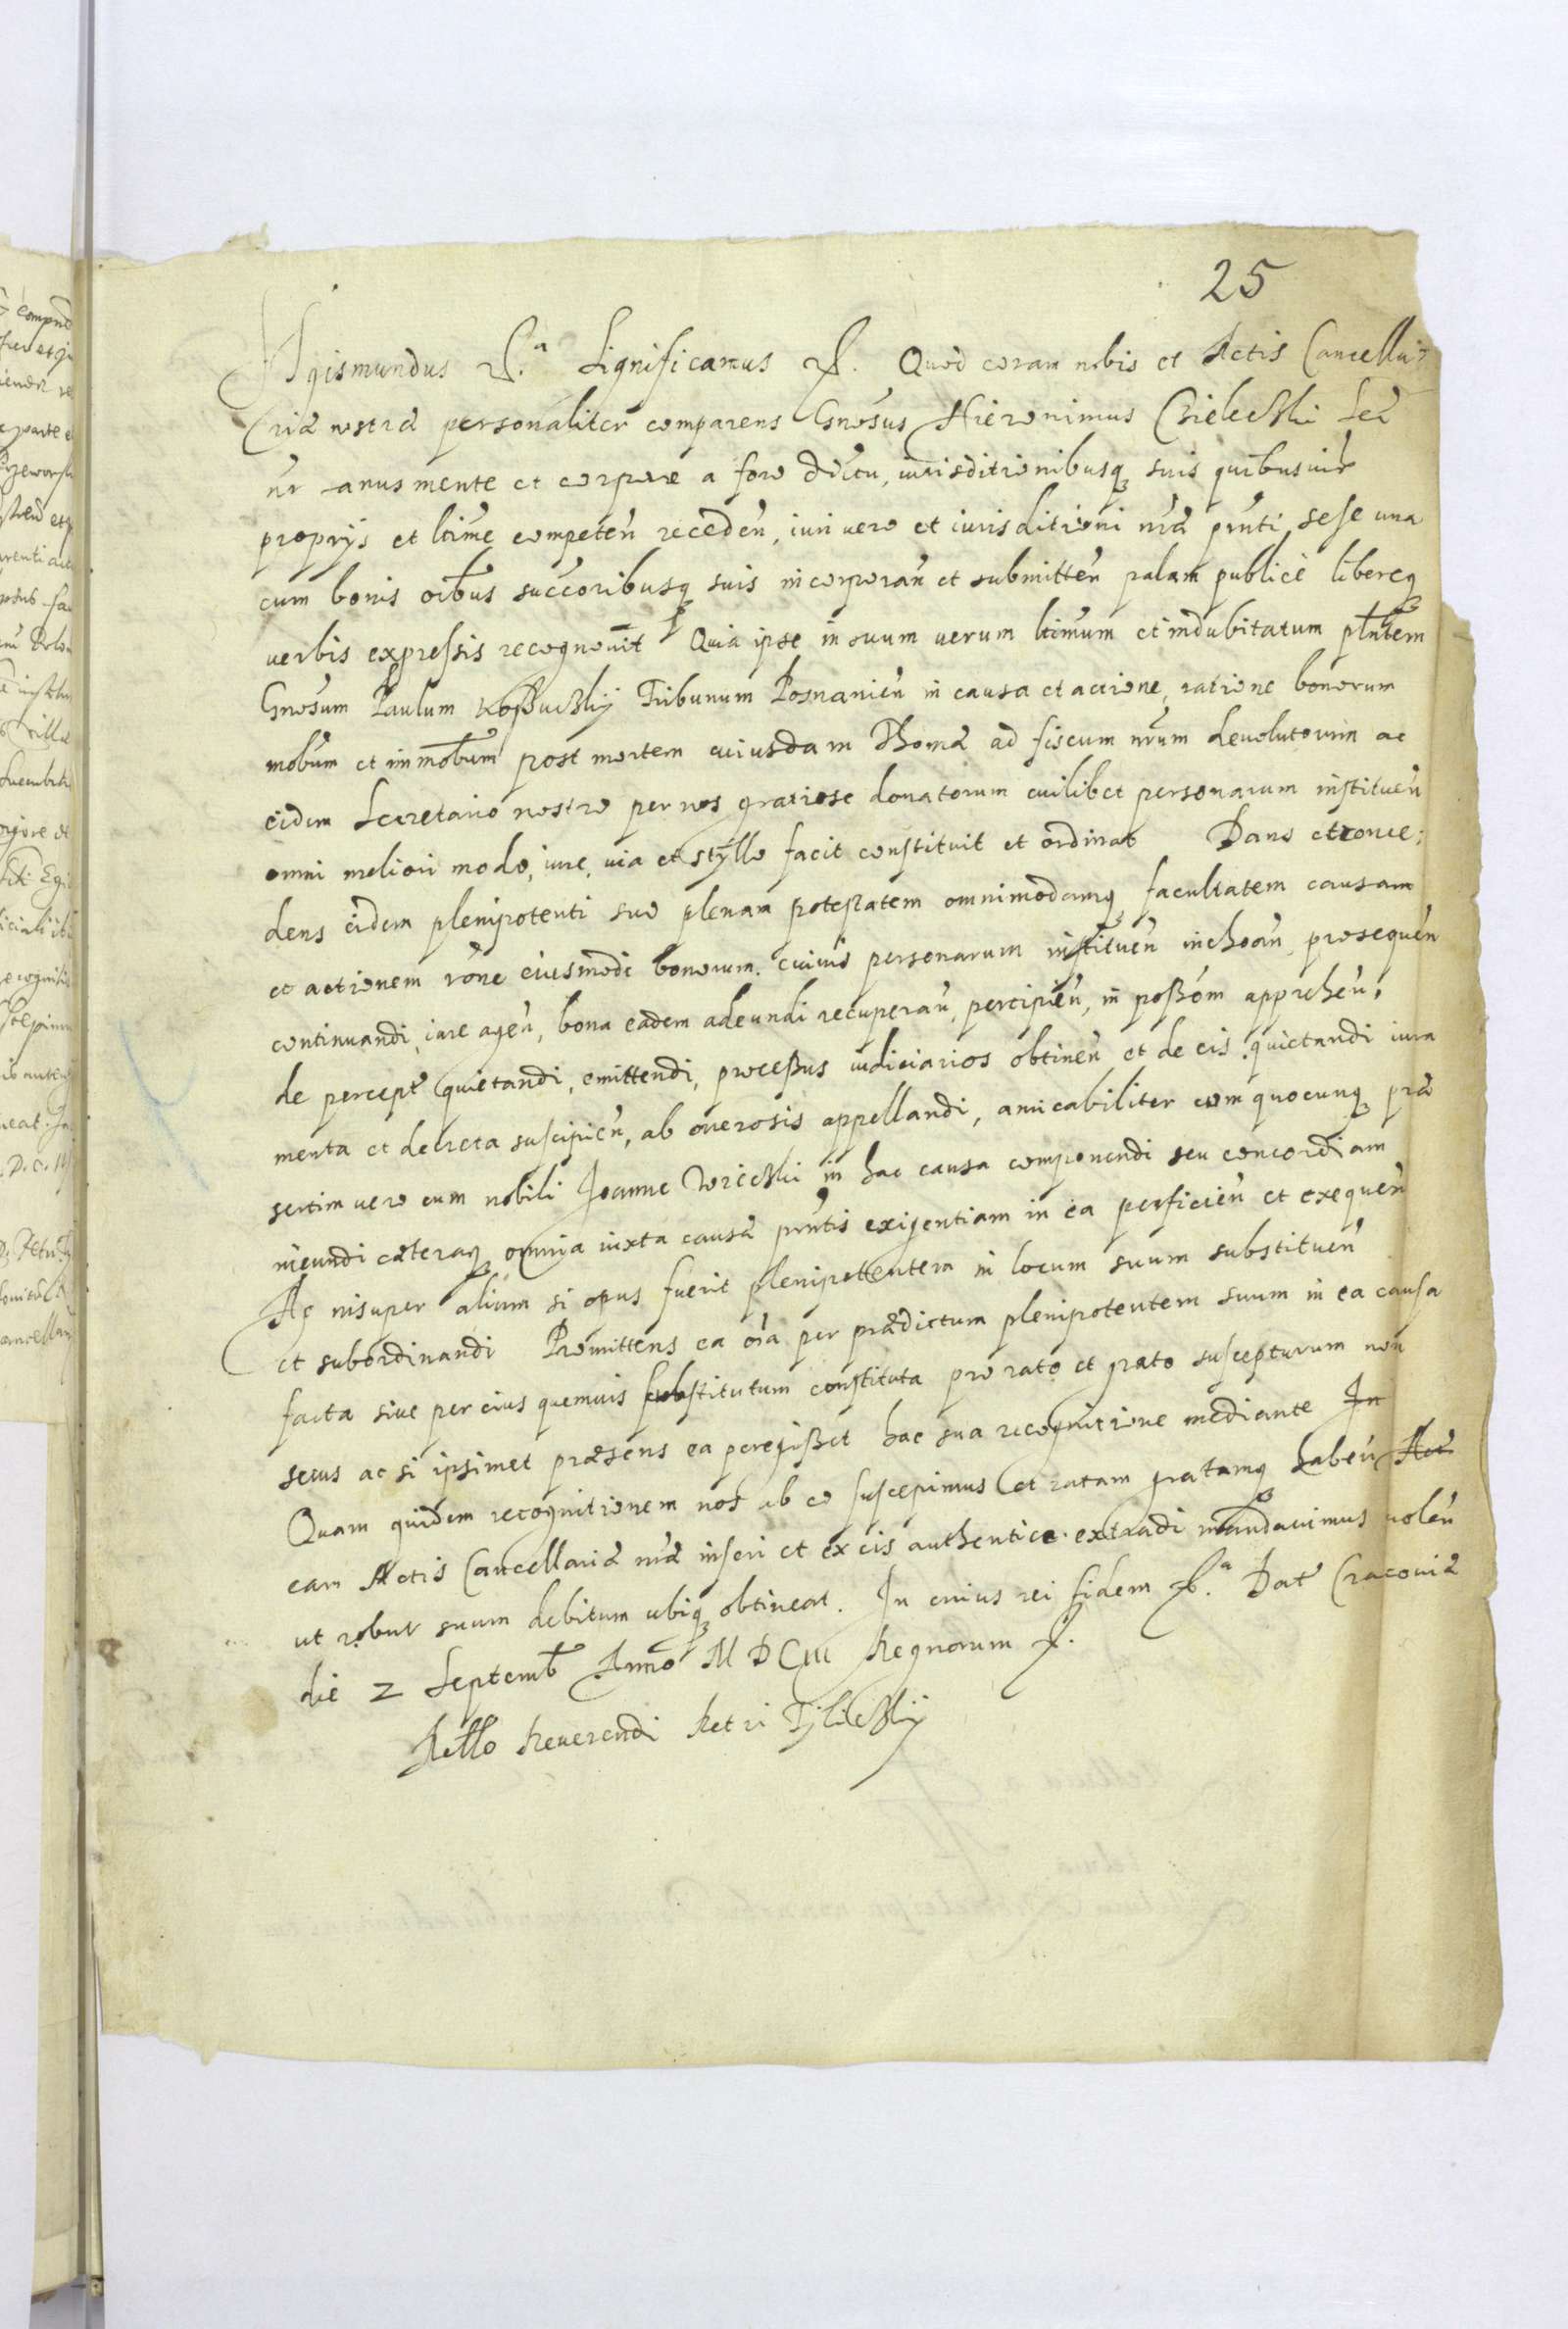 25
Sigismundus &.a Significamus &. Quod coram nobis et Actis Cancella:
riæ nostræ personaliter comparens Gnosus Hieronimus Cielecki Secr
nr sanus mente et corpore a foro distcu, iurisditionibusq suis quibusuis
proprijs et ltime competen receden, iuri vero et iurisditioni nræ pnti sese una
cum bonis oibus succoribusq suis incorporan et submitten palam publicè libereq
verbis expressis recognouit Quia ipse in suum uerum ltimum et indubitatum plntem
Gnosum Paulum Kossuckij Tribunum Posnanien in causa et actione, ratione bonorum
mobum et immobum post mortem cuiusdam Thomæ ad fiscum nrum deuolutorum ac
eidem Secretario nostro per nos gratiose donatorum cuilibet personarum instituen
omni meliori modo, iure, uia et styllo facit constituit et ordinat Dans et conce:
dens eidem plenipotenti suo plenam potestatem omnimodamq facultatem causam
et actionem rone eiusmodi bonorum cuiuis personarum instituen inchoan, prosequen
continuandi, iure agen, bona eadem adeundi recuperan, percipien, in possom apprehen,
de percept quietandi, emittendi, processus iudiciarios obtinen et de eis quietandi iura
menta et decreta suscipien, ab onerosis appellandi, amicabiliter cum quocunq præ
sertim uero cum nobili Joanne in hac causa componendi seu concordiam
ineundi cæteraq omnia iuxta causæ pntis exigentiam in ea perficien et exequen
Ac insuper alium si opus fuerit plenipottentem in locum suum substituen
et subordinandi Promittens ea oia per prædictum plenipotentem suum in ea causa
facta siue per eius quemuis substitutum constituta pro rato et grato suscepturum non
secus ac si ipsimet præsens ea peregisset hac sua recognitione mediante In
Quam quidem recognitionem nos ab eo suscepimus et ratam gratamq haben Act
eam Actis Cancellariæ nræ inseri et ex eis authentice extradi mandauimus uolen
ut robur suum debitum ubiq obtineat. In cuius rei fidem &.a Dat Cracouiæ
die 2 Septemb Anno M D C III Regnorum &.
Rello Reuerendi Petri Tylickij